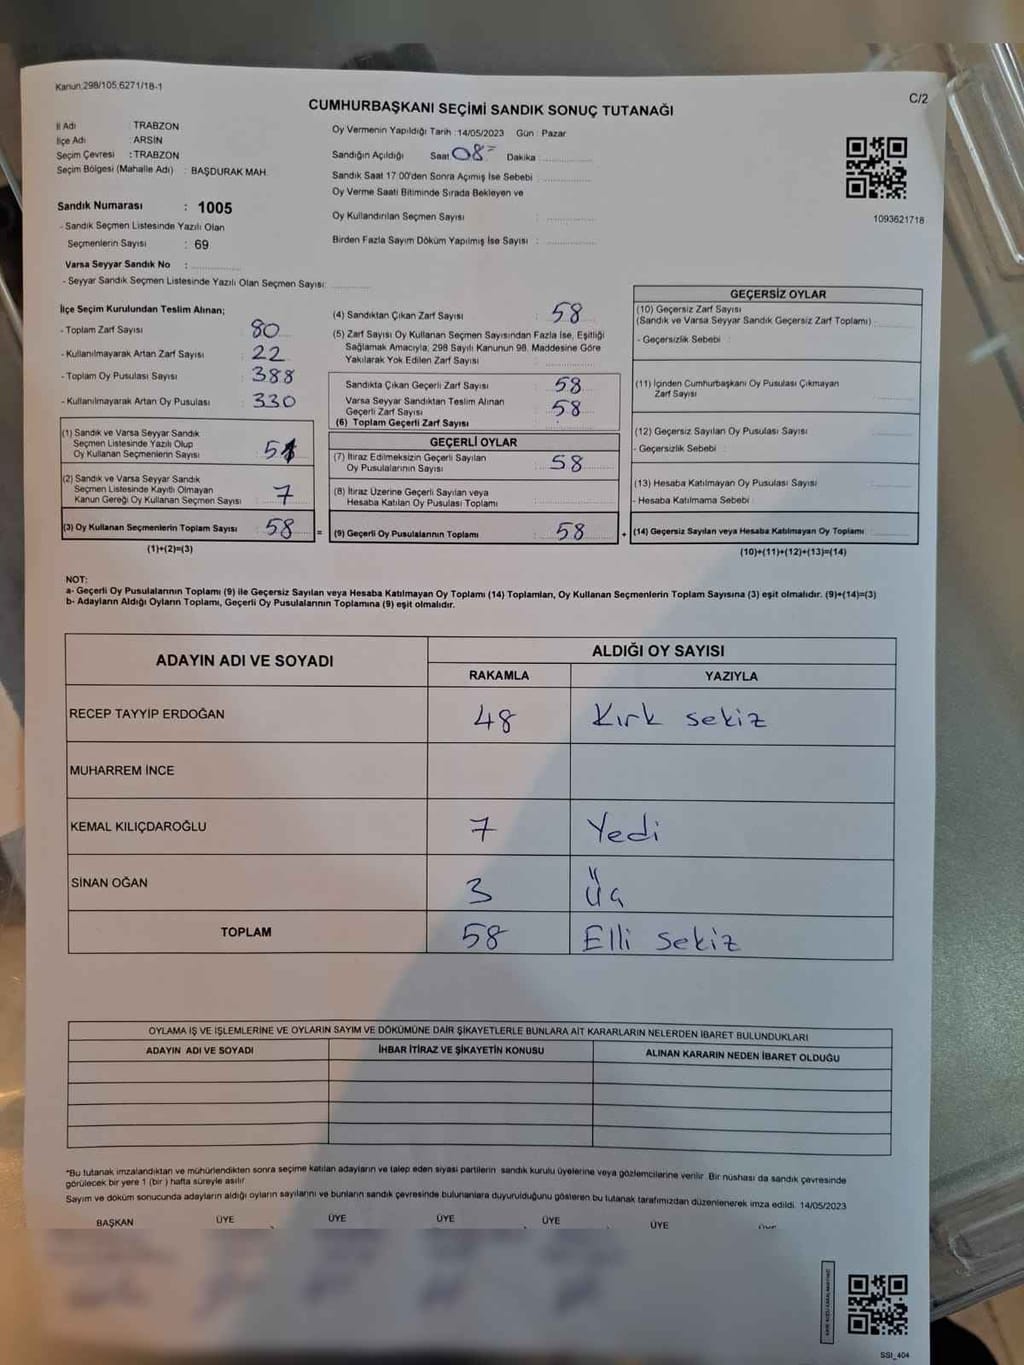 Kanun.298/105,6271/18-1
C/2
CUMHURBAŞKANI SEÇİMİ SANDIK SONUÇ TUTANAĞI
İl Adı : TRABZON
İlçe Adı : ARSİN
Seçim Çevresi : TRABZON
Seçim Bölgesi (Mahalle Adı) : BAŞDURAK MAH.
Sandık Numarası : 1005
- Sandık Seçmen Listesinde Yazılı Olan
Seçmenlerin Sayısı : 69
Varsa Seyyar Sandık No :
- Seyyar Sandık Seçmen Listesinde Yazılı Olan Seçmen Sayısı:
Oy Vermenin Yapıldığı Tarih :14/05/2023 Gün : Pazar
Sandığın Açıldığı Saat 08 Dakika :
Sandık Saat 17:00'den Sonra Açımış İse Sebebi :
Oy Verme Saati Bitiminde Sırada Bekleyen ve
Oy Kullandırılan Seçmen Sayısı :
Birden Fazla Sayım Döküm Yapılmış İse Sayısı :
1093621718
İlçe Seçim Kurulundan Teslim Alınan;
- Toplam Zarf Sayısı : 80
- Kullanılmayarak Artan Zarf Sayısı : 22
- Toplam Oy Pusulası Sayısı : 388
- Kullanılmayarak Artan Oy Pusulası : 330
(1) Sandık ve Varsa Seyyar Sandık
Seçmen Listesinde Yazılı Olup
Oy Kullanan Seçmenlerin Sayısı : 51
(2) Sandık ve Varsa Seyyar Sandık
Seçmen Listesinde Kayıtlı Olmayan
Kanun Gereği Oy Kullanan Seçmen Sayısı : 7
(3) Oy Kullanan Seçmenlerin Toplam Sayısı : 58 =
(1)+(2)=(3)
(4) Sandıktan Çıkan Zarf Sayısı : 58
(5) Zarf Sayısı Oy Kullanan Seçmen Sayısından Fazla İse, Eşitliği
Sağlamak Amacıyla; 298 Sayılı Kanunun 98. Maddesine Göre
Yakılarak Yok Edilen Zarf Sayısı :
Sandıkta Çıkan Geçerli Zarf Sayısı : 58
Varsa Seyyar Sandıktan Teslim Alınan
Geçerli Zarf Sayısı : 58
(6) Toplam Geçerli Zarf Sayısı :
GEÇERLİ OYLAR
(7) İtiraz Edilmeksizin Geçerli Sayılan
Oy Pusulalarının Sayısı : 58
(8) İtiraz Üzerine Geçerli Sayılan veya
Hesaba Katılan Oy Pusulası Toplamı :
(9) Geçerli Oy Pusulalarının Toplamı : 58 +
GEÇERSİZ OYLAR
(10) Geçersiz Zarf Sayısı
(Sandık ve Varsa Seyyar Sandık Geçersiz Zarf Toplamı) :
- Geçersizlik Sebebi :
(11) İçinden Cumhurbaşkanı Oy Pusulası Çıkmayan
Zarf Sayısı :
(12) Geçersiz Sayılan Oy Pusulası Sayısı :
- Geçersizlik Sebebi :
(13) Hesaba Katılmayan Oy Pusulası Sayısı :
- Hesaba Katılmama Sebebi :
(14) Geçersiz Sayılan veya Hesaba Katılmayan Oy Toplamı :
(10)+(11)+(12)+(13)=(14)
NOT:
a- Geçerli Oy Pusulalarının Toplamı (9) ile Geçersiz Sayılan veya Hesaba Katılmayan Oy Toplamı (14) Toplamları, Oy Kullanan Seçmenlerin Toplam Sayısına (3) eşit olmalıdır. (9)+(14)=(3)
b- Adayların Aldığı Oyların Toplamı, Geçerli Oy Pusulalarının Toplamına (9) eşit olmalıdır.
ADAYIN ADI VE SOYADI ALDIĞI OY SAYISI
RAKAMLA YAZIYLA
RECEP TAYYİP ERDOĞAN 48 Kırk sekiz
MUHARREM İNCE
KEMAL KILIÇDAROĞLU 7 Yedi
SİNAN OĞAN 3 Üç
TOPLAM 58 Elli sekiz
OYLAMA İŞ VE İŞLEMLERİNE VE OYLARIN SAYIM VE DÖKÜMÜNE DAİR ŞİKAYETLERLE BUNLARA AİT KARARLARIN NELERDEN İBARET BULUNDUKLARI
ADAYIN ADI VE SOYADI İHBAR İTİRAZ VE ŞİKAYETİN KONUSU ALINAN KARARIN NEDEN İBARET OLDUĞU
*Bu tutanak imzalandıktan ve mühürlendikten sonra seçime katılan adayların ve talep eden siyasi partilerin sandık kurulu üyelerine veya gözlemcilerine verilir. Bir nüshası da sandık çevresinde
görülecek bir yere 1 (bir) hafta süreyle asılır
Sayım ve döküm sonucunda adayların aldığı oyların sayılarını ve bunların sandık çevresinde bulunanlara duyurulduğunu gösteren bu tutanak tarafımızdan düzenlenerek imza edildi. 14/05/2023
BAŞKAN ÜYE ÜYE ÜYE ÜYE ÜYE ÜYE
SSI_404